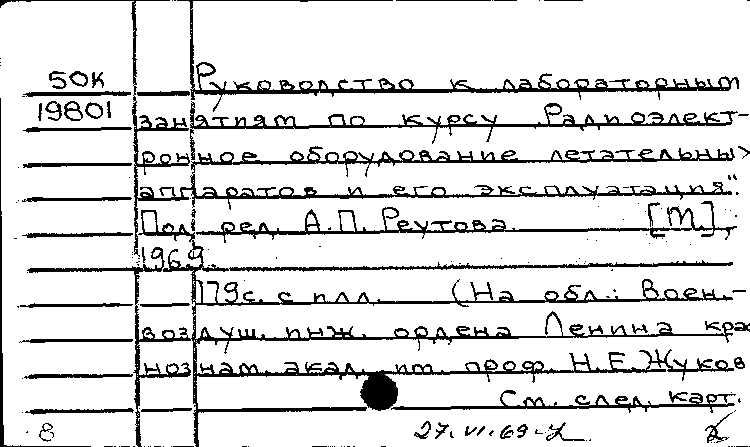 50К
Руководство к лабораторным
19801
занятиям по курсу "Радиоэлект-
ронное оборудование летательных
аппаратов и его эксплуатация".
Под ред. А.П. Реутова. [М.],
1969.
179с. с илл. (На обл.: Воен.-
воздуш. инж. ордена Ленина крас
нознам. акад. им. проф. Н.Е.Жуков
См. след. карт.
8 27.VI.69